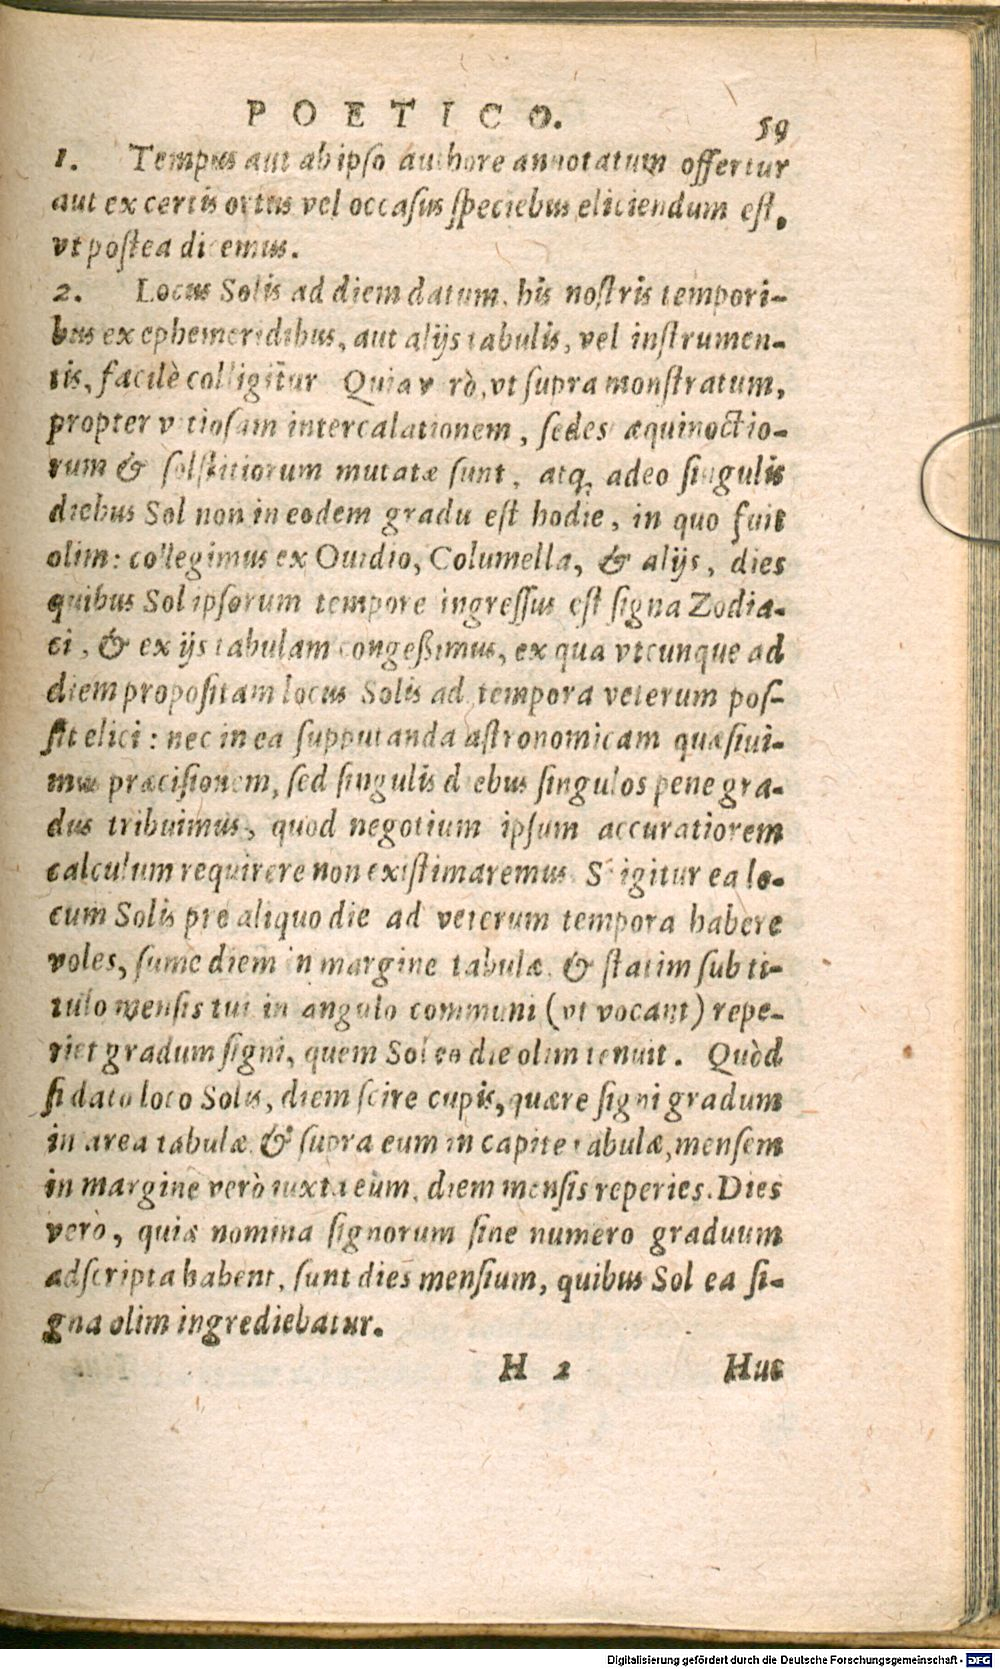 POETICO. 59
1. Tempus aut ab ipso authore annotatum offertur
aut ex certis ortus vel occasus speciebus eliciendum est,
vt postea dicemus.
2. Locus Solis ad diem datum, his nostris tempori-
bus ex ephemeridibus, aut alijs tabulis, vel instrumen-
tis, facilè colligitur Quia vrò, vt supra monstratum,
propter vitiosam intercalationem, sedes æquinoctio-
rum & solstitiorum mutatæ sunt, atq; adeo singulis
diebus Sol non in eodem gradu est hodie, in quo fuit
olim: collegimus ex Ouidio, Columella, & alijs, dies
quibus Sol ipsorum tempore ingressus est signa Zodia-
ci, & ex ijs tabulam congeßimus, ex qua vtcunque ad
diem propositam locus Solis ad tempora veterum pos-
sit elici: nec in ea supputanda astronomicam quæsiui-
mus præcisionem, sed singulis diebus singulos pene gra-
dus tribuimus, quod negotium ipsum accuratiorem
calculum requirere non existimaremus. Si igitur ea lo-
cum Solis pre aliquo die ad veterum tempora habere
voles, sume diem in margine tabulæ & statim sub ti-
tulo mensis tui in angulo communi (vt vocant) repe-
riet gradum signi, quem Sol eo die olim tenuit. Quòd
si dato loco Solis, diem scire cupis, quære signi gradum
in area tabulæ & supra eum in capite tabulæ, mensem
in margine verò iuxta eum, diem mensis reperies. Dies
verò, quiæ nomina signorum sine numero graduum
adscripta habent, sunt dies mensium, quibus Sol ea si-
gna olim ingrediebatur.
H 2 Huc
Digitalisierung gefördert durch die Deutsche Forschungsgemeinschaft - DFG